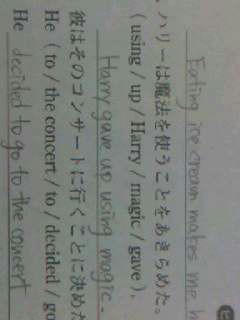 Eating ice cream makes me h
ハリーは魔法を使うことをあきらめた。
( using / up / Harry / magic / gave ).
Harry gave up using magic.
彼はそのコンサートに行くことに決めた
He ( to / the concert / to / decided / go
He decided to go to the concert